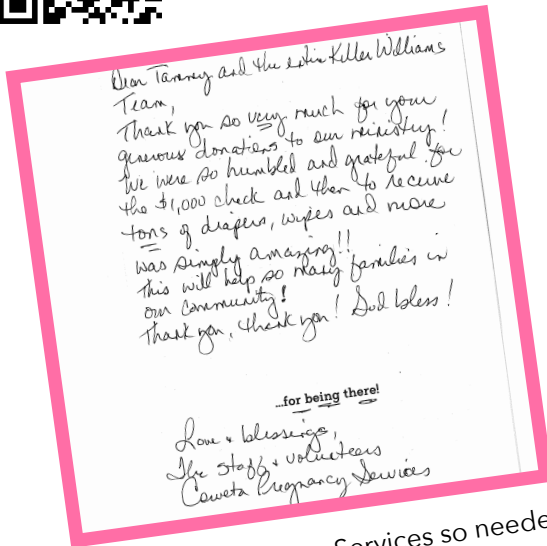 Dear Tammy and the entire Keller Williams
Team,
Thank you so very much for your
generous donations to our ministry!
We were so humbled and grateful for
the $1,000 check and then to receive
tons of diapers, wipes and more
was simply amazing!!
This will help so many families in
our community!
Thank you, thank you! God bless!
...for being there!
Love & blessings,
The Staff & volunteers
Coweta Pregnancy Services
Services so neede